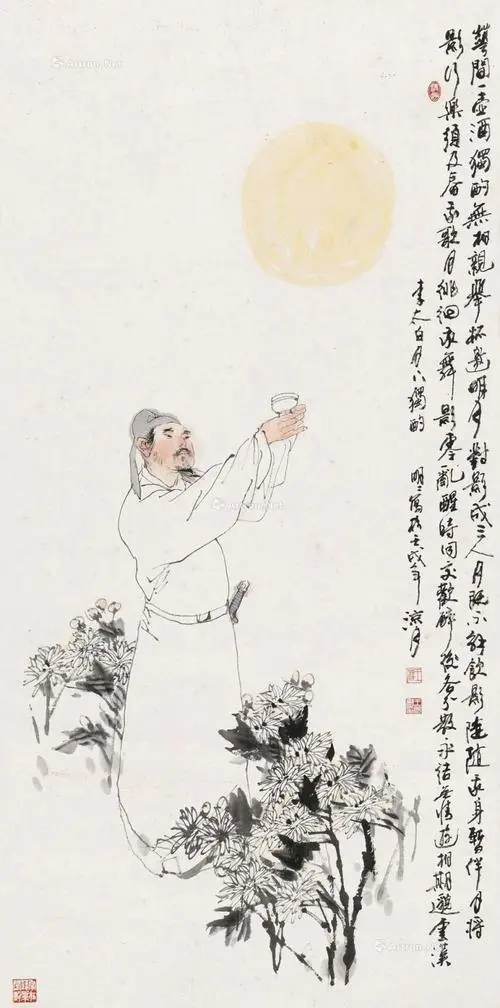 華間一壺酒獨酌無相親舉杯邀明月對影成三人月既不解飲影徒隨我身暫伴月將
影行樂須及春我歌月徘徊我舞影零亂醒時同交歡醉後各分散永結無情遊相期邈雲漢
李太白月下獨酌
明明寫於壬戌年涼月
Artron.Net
Artron.Net